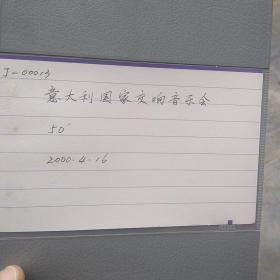 J-00013
意大利国家交响音乐会
50'
2000.4.16